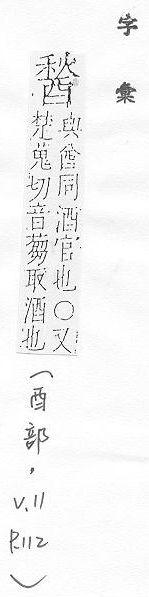 字彙
與酋同酒官也○又
楚蒐切音蒭取酒也
(酉部, V.11 P.112)